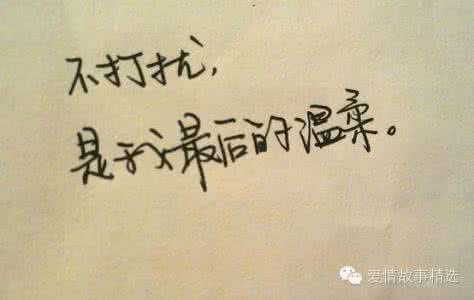 不打扰，
是我最后的温柔。
爱情故事精选